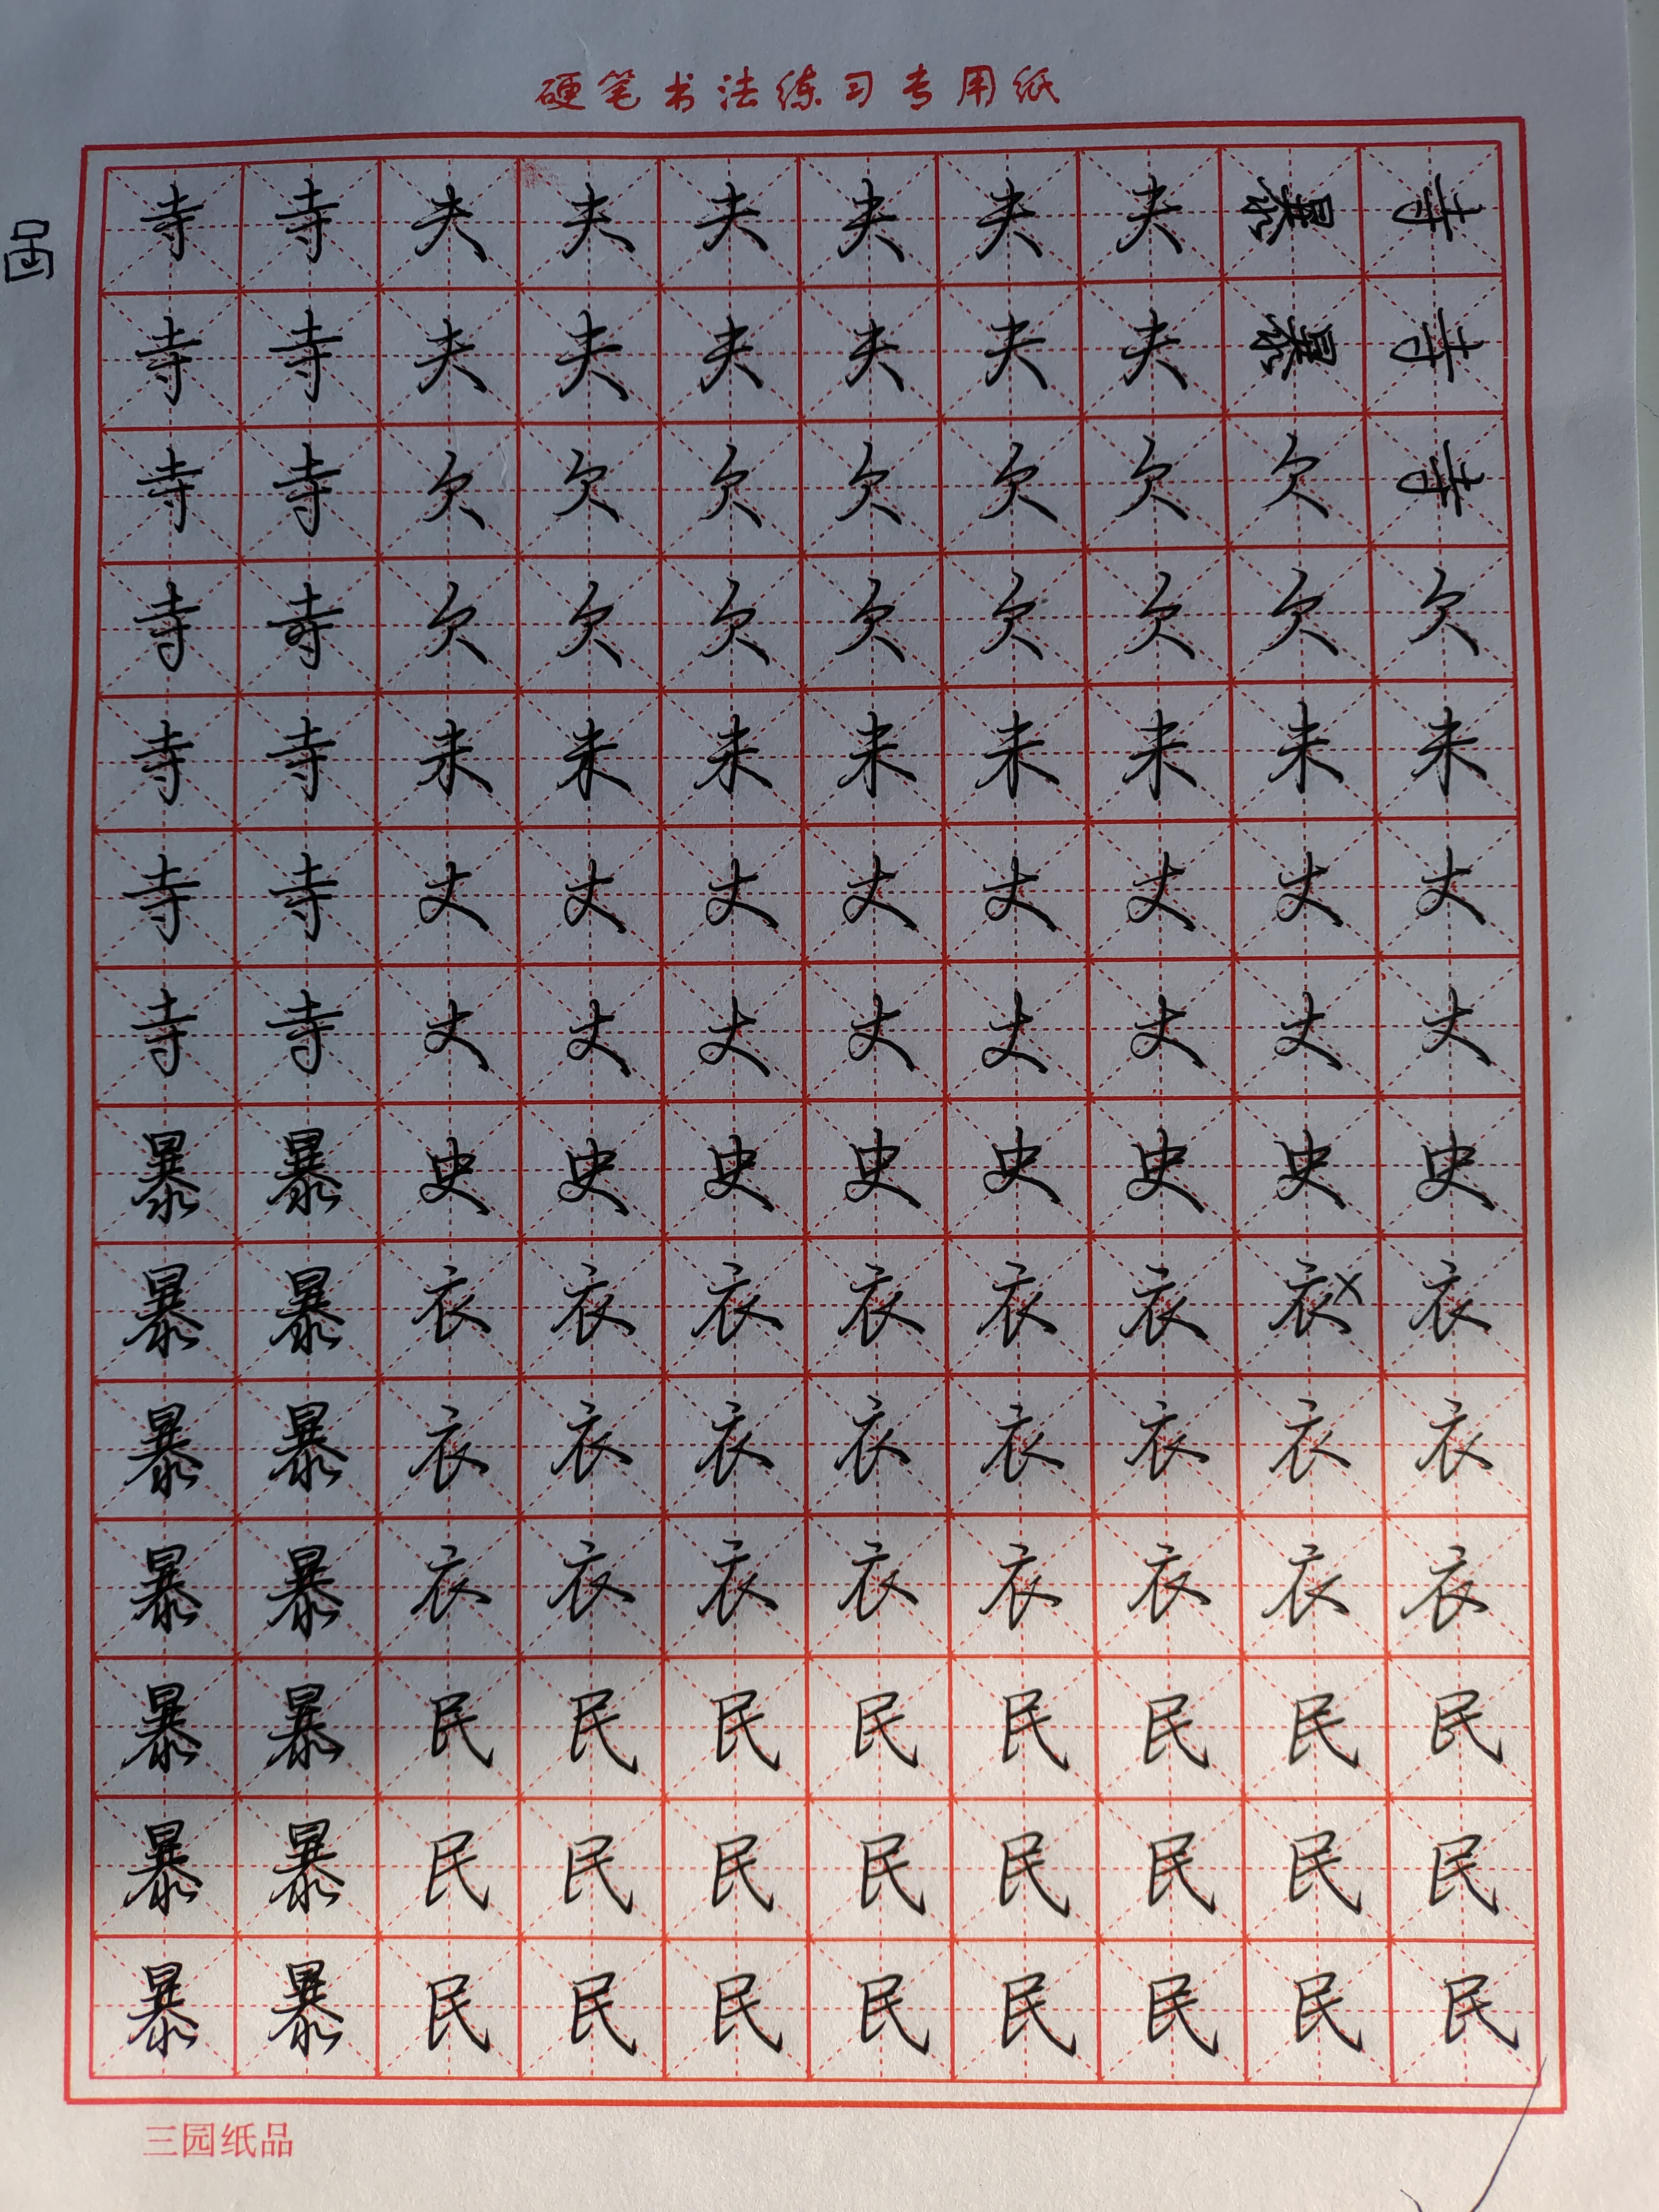 硬笔书法练习专用纸
寺寺夫夫夫夫夫夫暴寺
寺寺夫夫夫夫夫夫暴寺
寺寺欠欠欠欠欠欠欠寺
寺寺欠欠欠欠欠欠欠欠
寺寺未未未未未未未未
寺寺丈丈丈丈丈丈丈丈
寺寺丈丈丈丈丈丈丈丈
暴暴史史史史史史史史
暴暴衣衣衣衣衣衣衣衣
暴暴衣衣衣衣衣衣衣衣
暴暴衣衣衣衣衣衣衣衣
暴暴民民民民民民民民
暴暴民民民民民民民民
暴暴民民民民民民民民
三园纸品